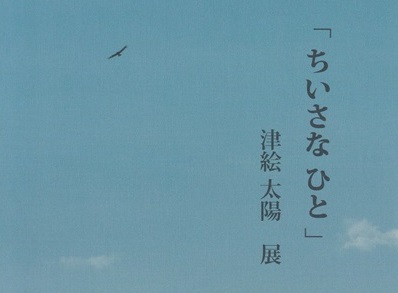 「ちいさな ひと」
津絵 太陽 展